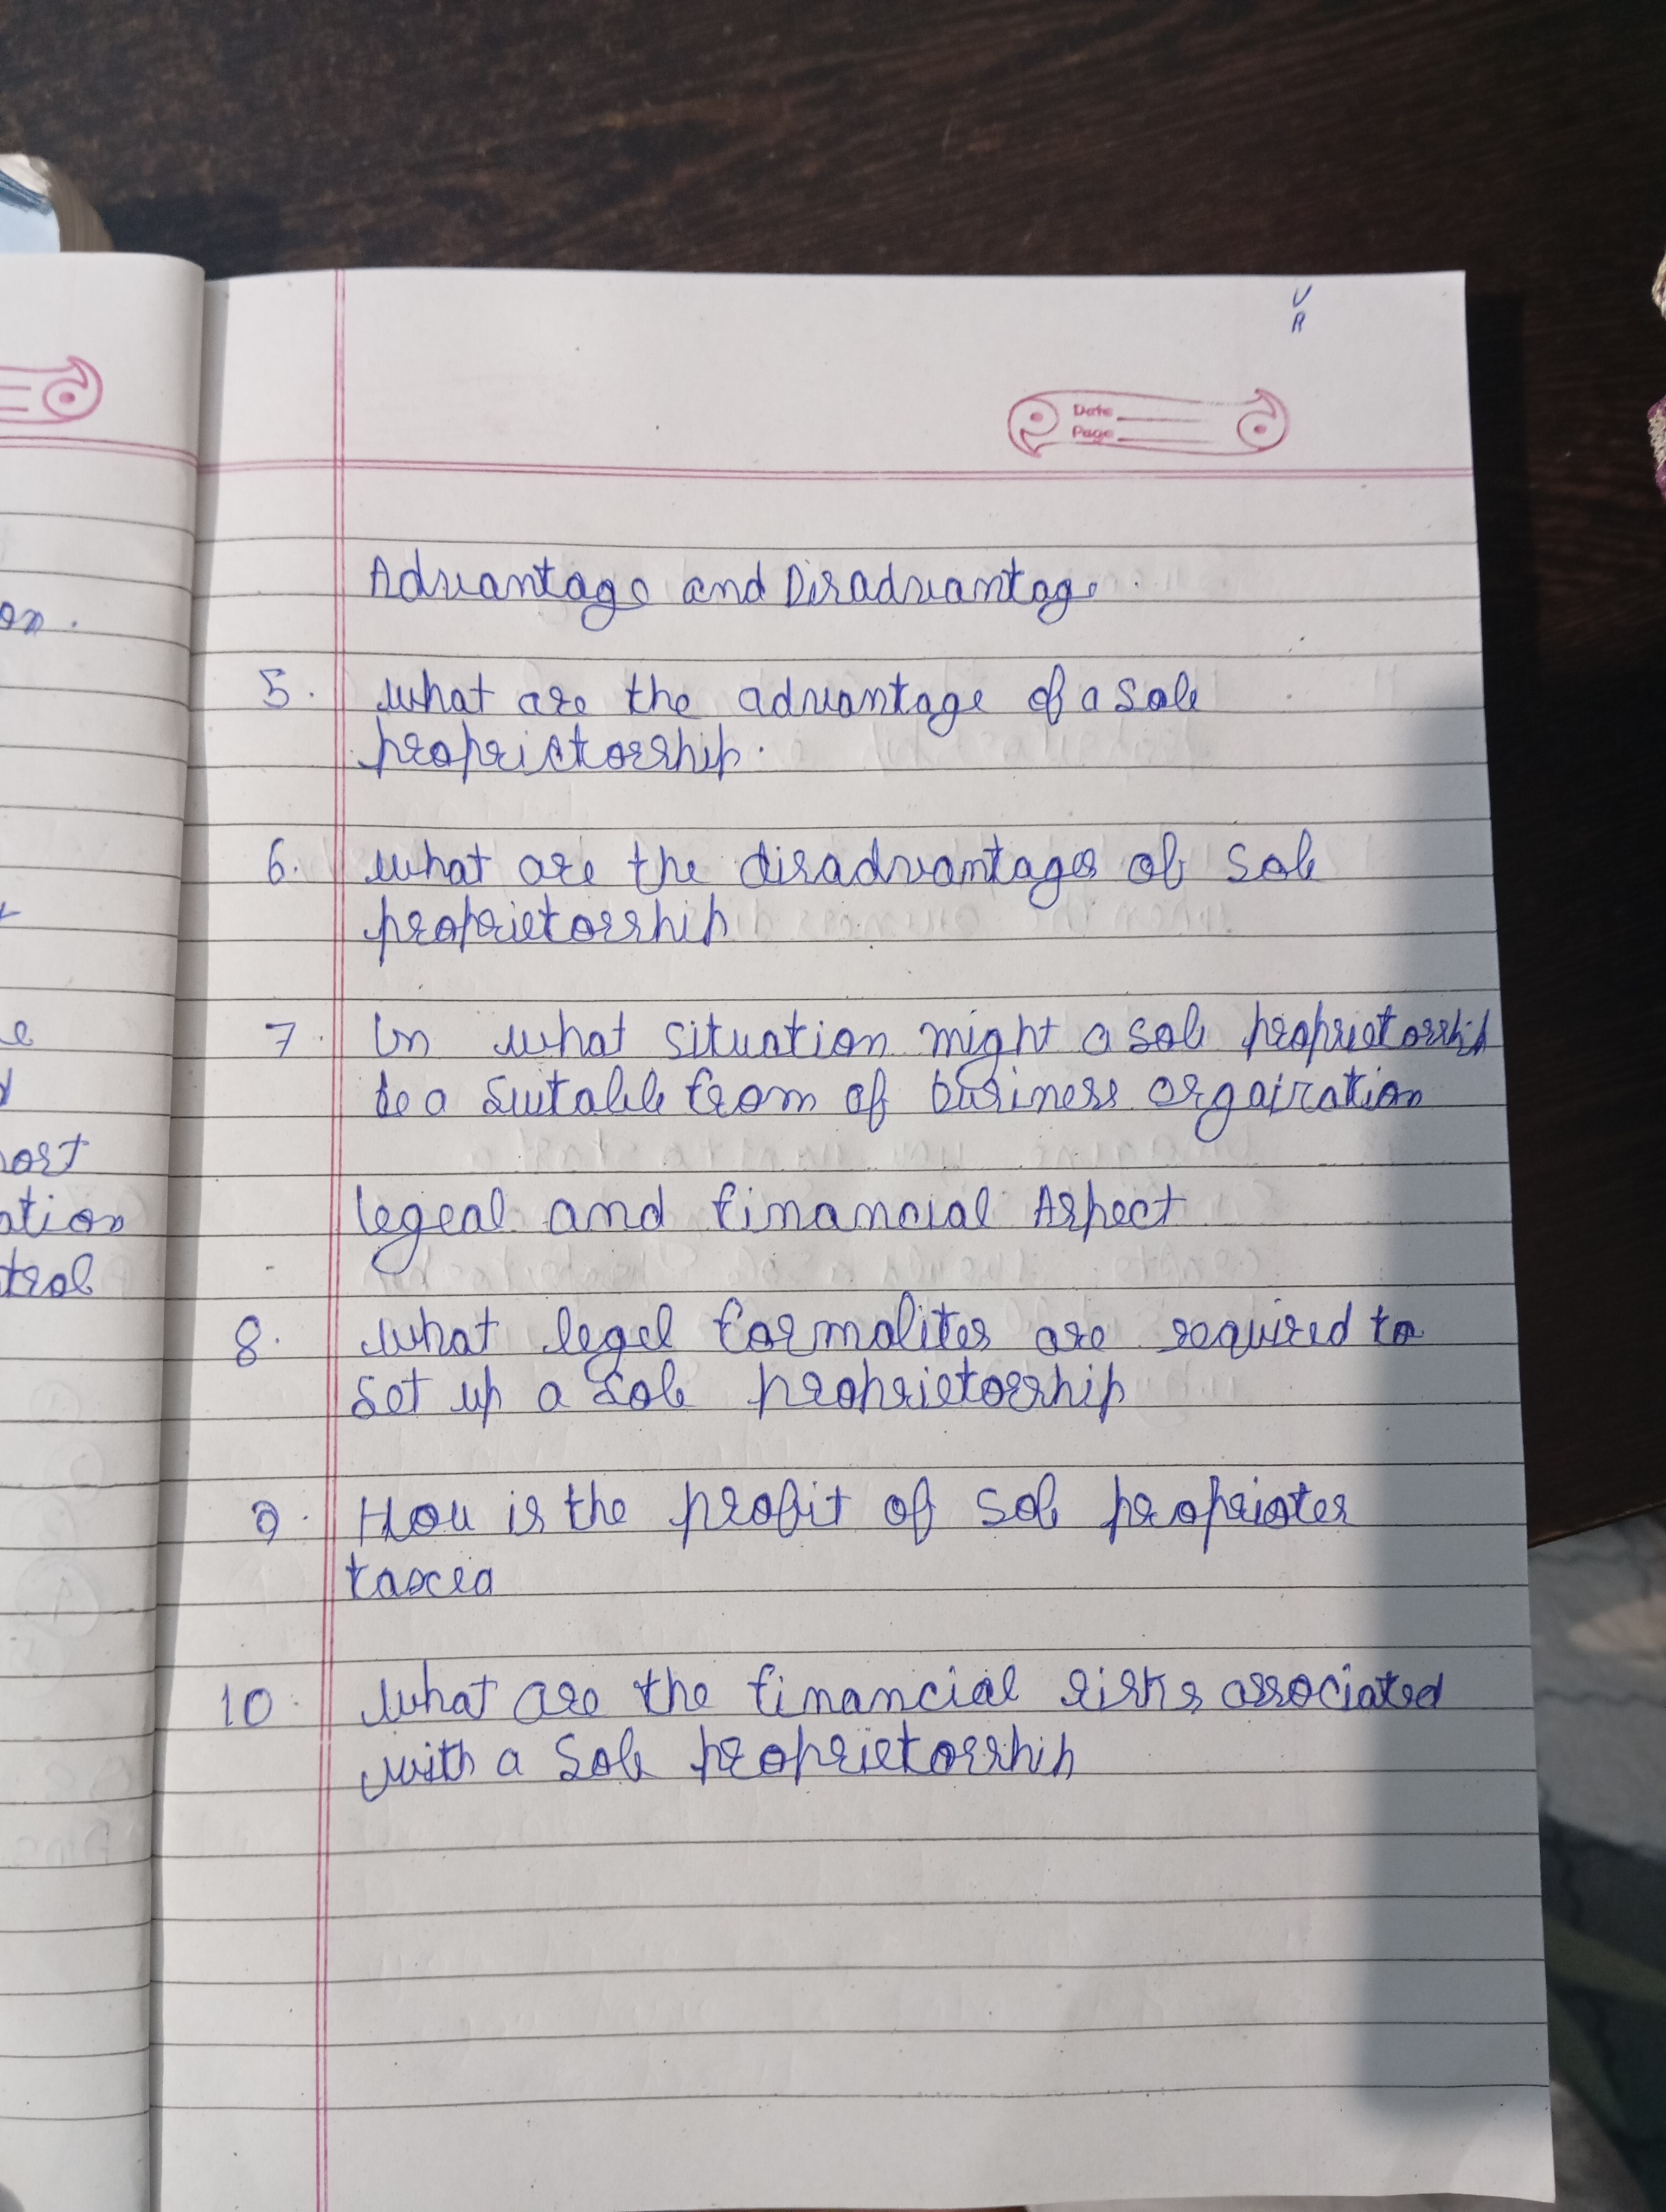 V
R
Date
Page
Advantage and Disadvantage.
5. what are the advantage of a sole
proprietorship.
6. what are the disadvantages of sole
proprietorship
7. In what situation might a sole proprietorship
be a suitable from of business orgairation
legeal and financial Aspect
8. what legel formalites are required to
set up a sole proprietorship
9. How is the profit of sole proprioter
taxed
10. what are the financial risks associated
with a sole proprietorship
on.
e
d
port
ation
trol